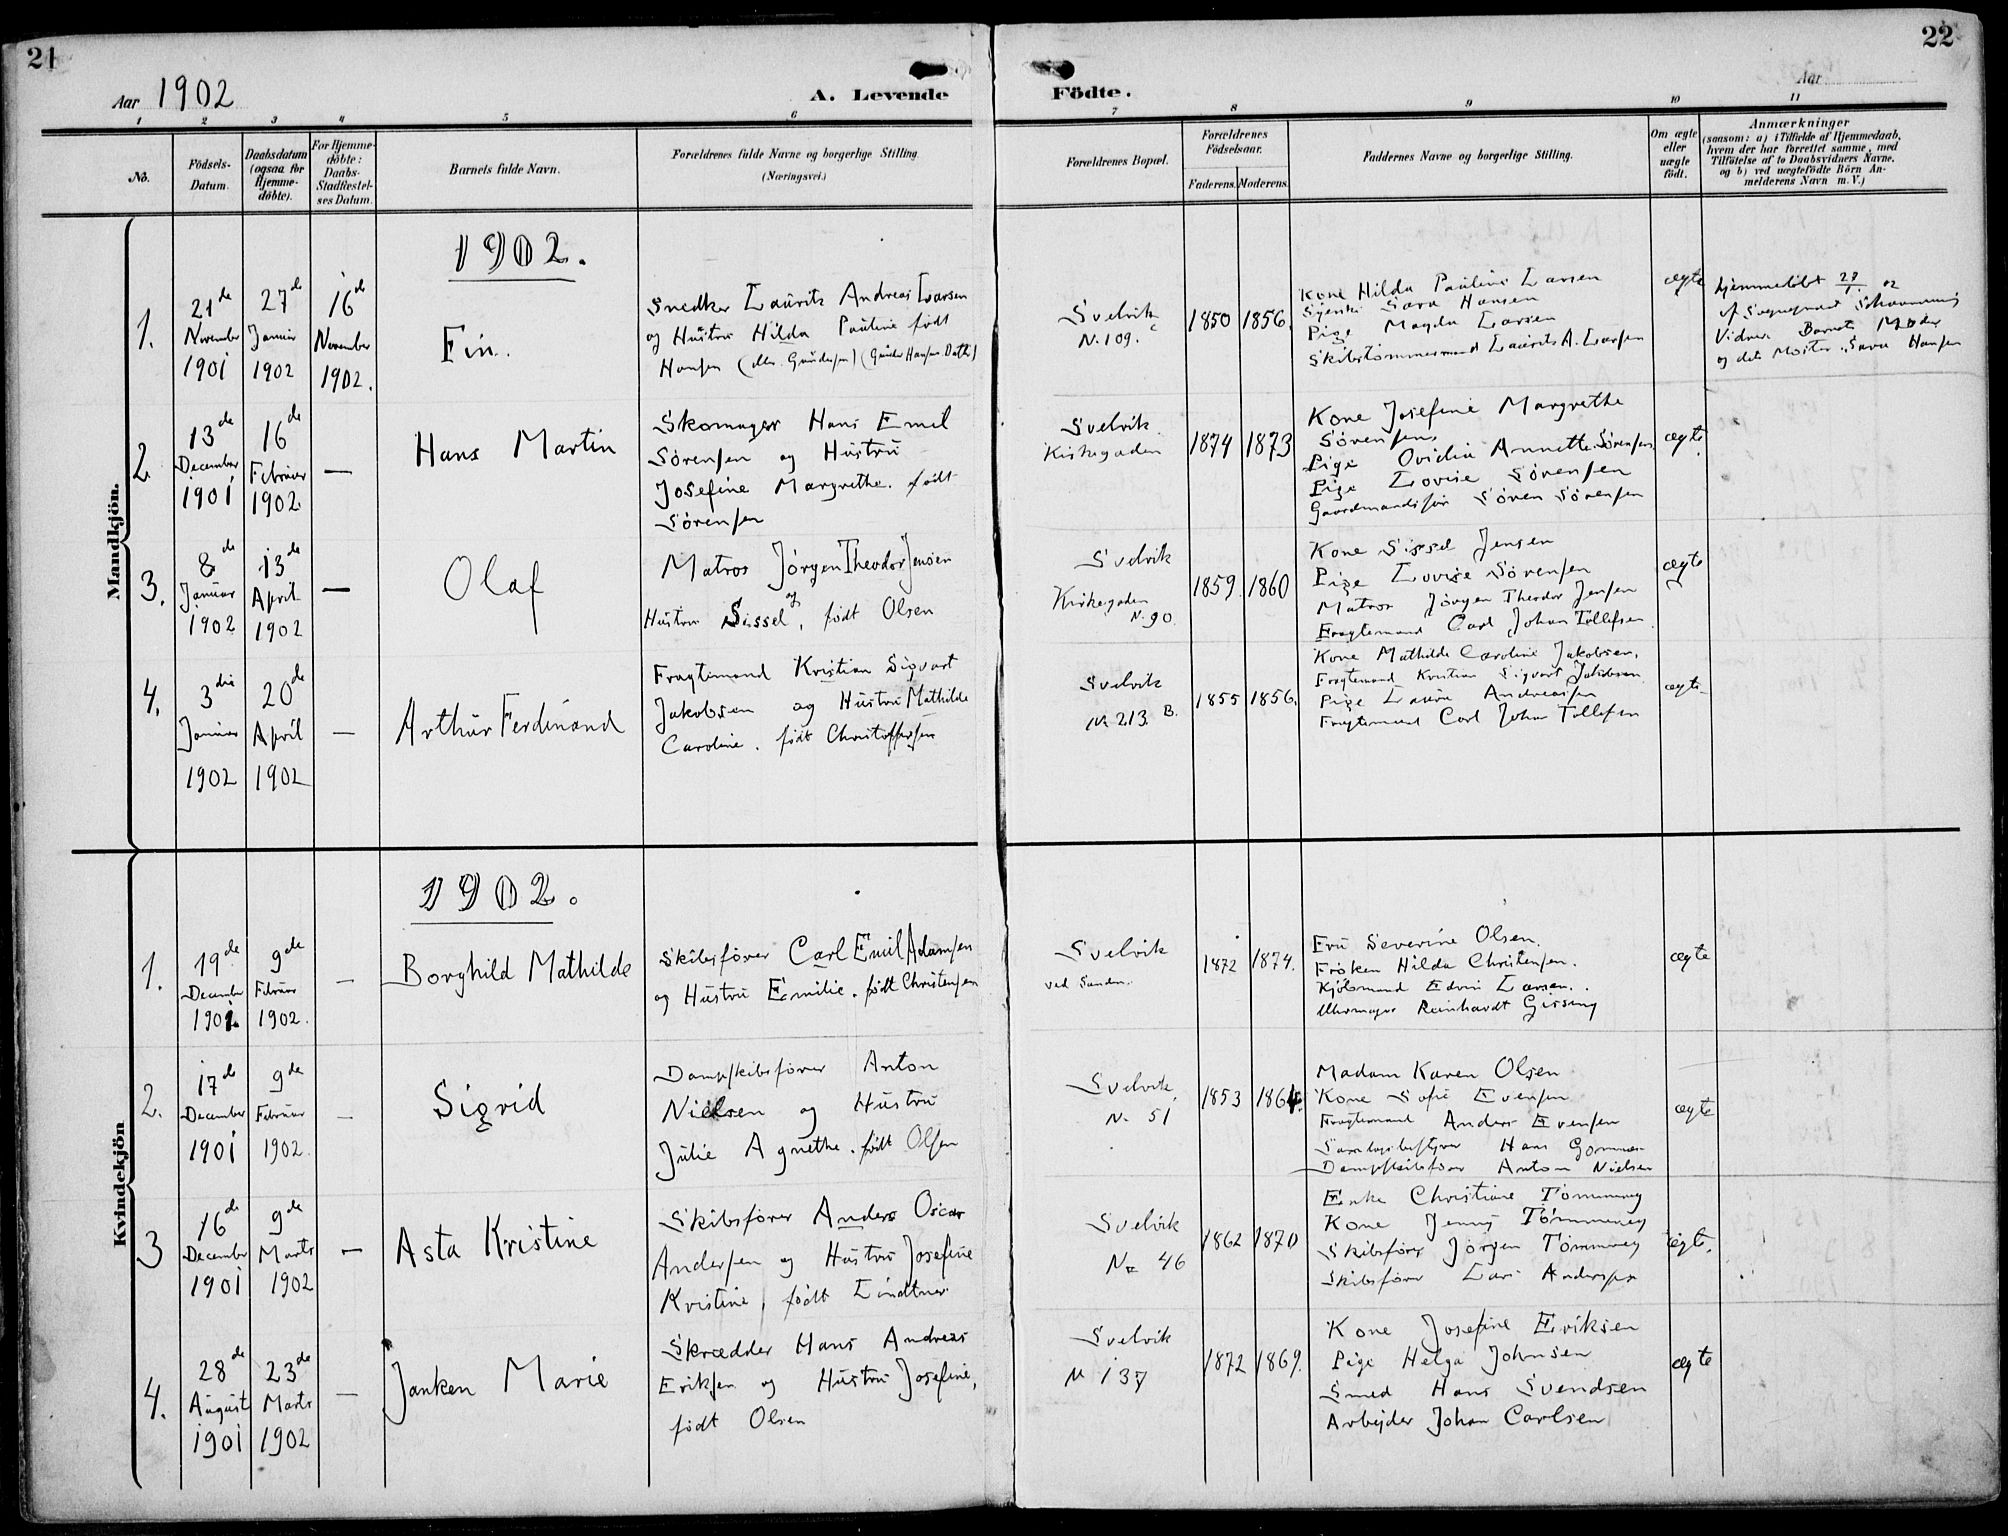 21
22
Aar 1902
A. Levende
Födte.
Aar
1
2
3
4
5
6
7
8
9
10
11
No.
Födsels-
Datum.
Daabsdatum
(ogsaa for
Hjemme-
döbte).
For Hjemme-
döbte:
Daabs-
Stadfæstel-
ses Datum.
Barnets fulde Navn.
Forældrenes fulde Navne og borgerlige Stilling.
(Næringsvei.)
Forældrenes Bopæl.
Forældrenes
Födselsaar.
Faderens.
Moderens.
Faddernes Navne og borgerlige Stilling.
Om ægte
eller
uægte
födt.
Anmærkninger
(saasom: a) i Tilfælde af Hjemmedaab,
hvem der har forrettet samme, med
Tilföielse af to Daabsvidners Navne.
og b) ved uægtefödte Börn An-
melderens Navn m. V.)
Mandkjön.
1902.
1.
21de
November
1901
27de
Januar
1902
16de
November
1902.
Fin.
Snedker Lauritz Andreas Larsen
og Hustru Hilda Pauline født
Hansen
Svelvik
N. 109. c
1850
1856.
Kone Hilda Pauline Larsen
Sara Hansen
Pige Magda Larsen
Skibstømmermand Laurits A. Larsen
ægte
Hjemmedøbt
af
Vidner Barnets Moder
og dets Moster Sara Hansen
2
13de
December
1901
16de
Februar
1902.
—
Hans Martin
Skomager Hans Emil
Sørensen og Hustru
Josefine Margrethe. født
Sørensen
Svelvik
Kirkegaden
1874
1873
Kone Josefine Margrethe
Sørensen,
Pige Ovidia Annette Sørensen
Pige Lovise Sørensen
Gaardmandssøn Søren Sørensen
ægte.
3.
8de
Januar
1902
13de
April
1902
—
Olaf
Matros Jørgen Theodor Jensen
og
Hustru Sissel, født Olsen
Svelvik
Kirkegaden
N. 90.
1859.
1860
Kone Sissel Jensen
Pige Lovise Sørensen
Matros Jørgen Theodor Jensen
Fragtemand Carl Johan Tollefsen
ægte
4.
3die
Januar
1902
20de
April
1902
—
Arthur Ferdinand
Fragtemand Kristian Sigvart
Jakobsen og Hustru Mathilde
Caroline. født Christoffersen
Svelvik
N. 213. B.
1855
1856.
Kone Mathilde Caroline Jakobsen,
Fragtemand Kristian Sigvart Jakobsen
Pige Laura Andreassen
Fragtemand Carl Johan Tollefsen
ægte
Kvindekjön
1902.
1.
19de
December
1901.
9de
Februar
1902.
—
Borghild Mathilde
Skibsfører Carl Emil Adamsen
og Hustru Emilie. født Christensen
Svelvik
ved Sanden.
1872
1874.
Fru Severine Olsen.
Frøken Hilda Christensen.
Kjøbmand Edvin Larsen.
Uhrmager Reinhardt Gissing
ægte
2.
17de
December
1901
9de
Februar
1902.
—
Sigrid
Dampskibsfører Anton
Nielsen og Hustru
Julie Agnethe. født Olsen
Svelvik,
N. 51
1853
1864.
Madam Karen Olsen
Kone Sofie Evensen
Fragtemand Anders Evensen
Hans
Dampskibsfører Anton Nielsen
ægte
3
16de
December
1901
9de
Marts
1902
—
Asta Kristine
Skibsfører Anders Oscar
Andersen og Hustru Josefine
Kristine, født Lindtner
Svelvik
No 46
1862
1870
Enke Christiane Tømmeraas
Kone Jenny Tømmeraas
Skibsfører Jørgen Tømmeraas
Skibsfører Lars Andersen
ægte.
4.
28de
August
1901
23de
Marts
1902
—
Janken Marie
Skrædder Hans Andreas
Eriksen og Hustru Josefine,
født Olsen
Svelvik
N 137
1872
1869.
Kone Josefine Eriksen
Pige Helga Johnsen
Smed Hans Svendsen
Arbejder Johan Carlsen
ægte